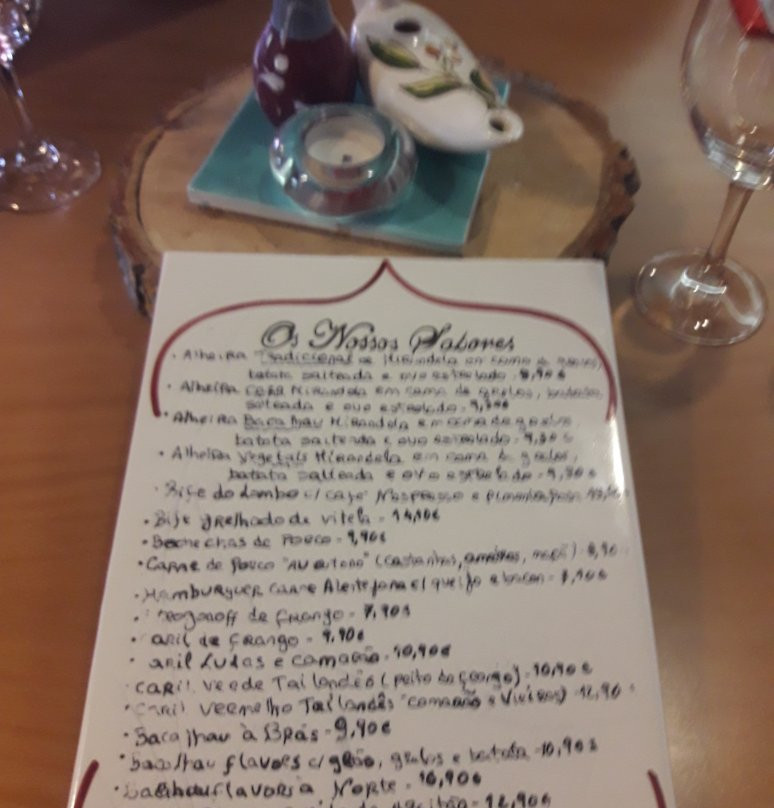 Os Nossos Sabores
· Alheira Tradicional de Mirandela em cama de grelos,
batata salteada e ovo estrelado - 8,90€
· Alheira Caça Mirandela em cama de grelos, batata
salteada e ovo estrelado - 9,90€
· Alheira Bacalhau Mirandela em cama de grelos
batata salteada e ovo estrelado - 9,90€
· Alheira Vegetais Mirandela em cama de grelos,
batata salteada e ovo estrelado - 9,90€
· Bife do Lombo c/ café Nespresso e pimenta
· Bife grelhado de vitela - 14,90€
· Bochechas de Porco - 9,90€
· Carne de Porco "Au outono" (castanhas, amêixas, maçã) - 8,90
· Hamburguer carne Alentejana c/ queijo e bacon - 7,90€
· Strogonoff de Frango - 7,90€
· Caril de Frango - 9,90€
· Caril Lulas e camarão - 10,90€
· Caril verde Tailandês (peito de frango) - 10,90€
· Caril vermelho Tailandês "camarão e Vieiras) - 12,90€
· Bacalhau à Brás - 9,90€
· Bacalhau flavors c/ grão, grelos e batata - 10,90€
· Bacalhau flavors à Norte - 10,90€
12,90€